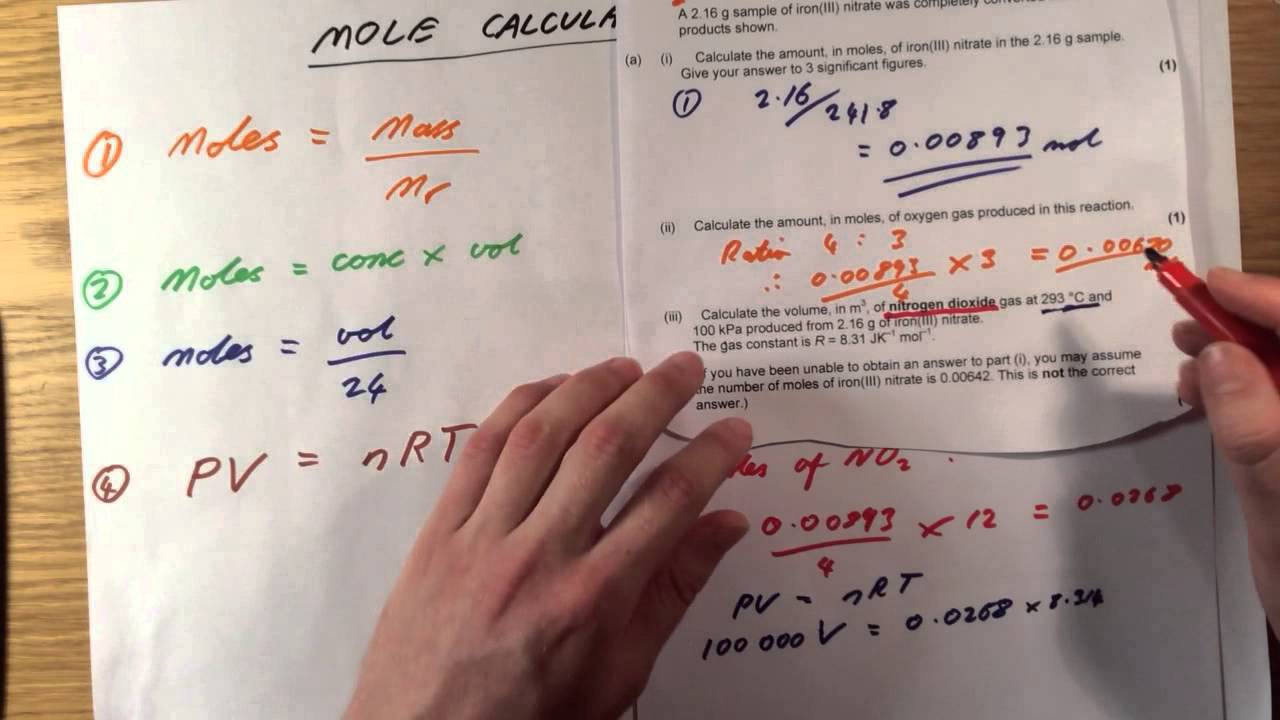 MOLE CALCULA
① Moles = Mass / Mr
② Moles = conc x vol
③ moles = vol / 24
④ PV = nRT
A 2.16 g sample of iron(III) nitrate was completely
products shown.
(a) (i) Calculate the amount, in moles, of iron(III) nitrate in the 2.16 g sample.
Give your answer to 3 significant figures.
(1)
① 2.16/241.8
= 0.00893 mol
(ii) Calculate the amount, in moles, of oxygen gas produced in this reaction.
(1)
Ratio 4 : 3
∴ 0.00893 / 4 x 3 = 0.00670
(iii) Calculate the volume, in m³, of nitrogen dioxide gas at 293 °C and
100 kPa produced from 2.16 g of iron(III) nitrate.
The gas constant is R = 8.31 JK⁻¹ mol⁻¹.
f you have been unable to obtain an answer to part (i), you may assume
the number of moles of iron(III) nitrate is 0.00642. This is not the correct
answer.)
of NO₂ .
0.00893 / 4 x 12 = 0.0268
PV = nRT
100 000 V = 0.0268 x 8.314